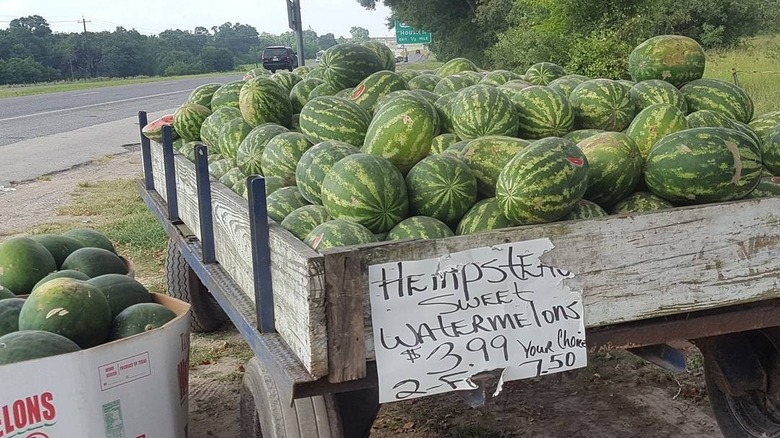 HOUSLEY
HEMPSTEAD
SWEET
WATERMELONS
$3.99 YOUR CHOICE
2-F 7.50
LONS